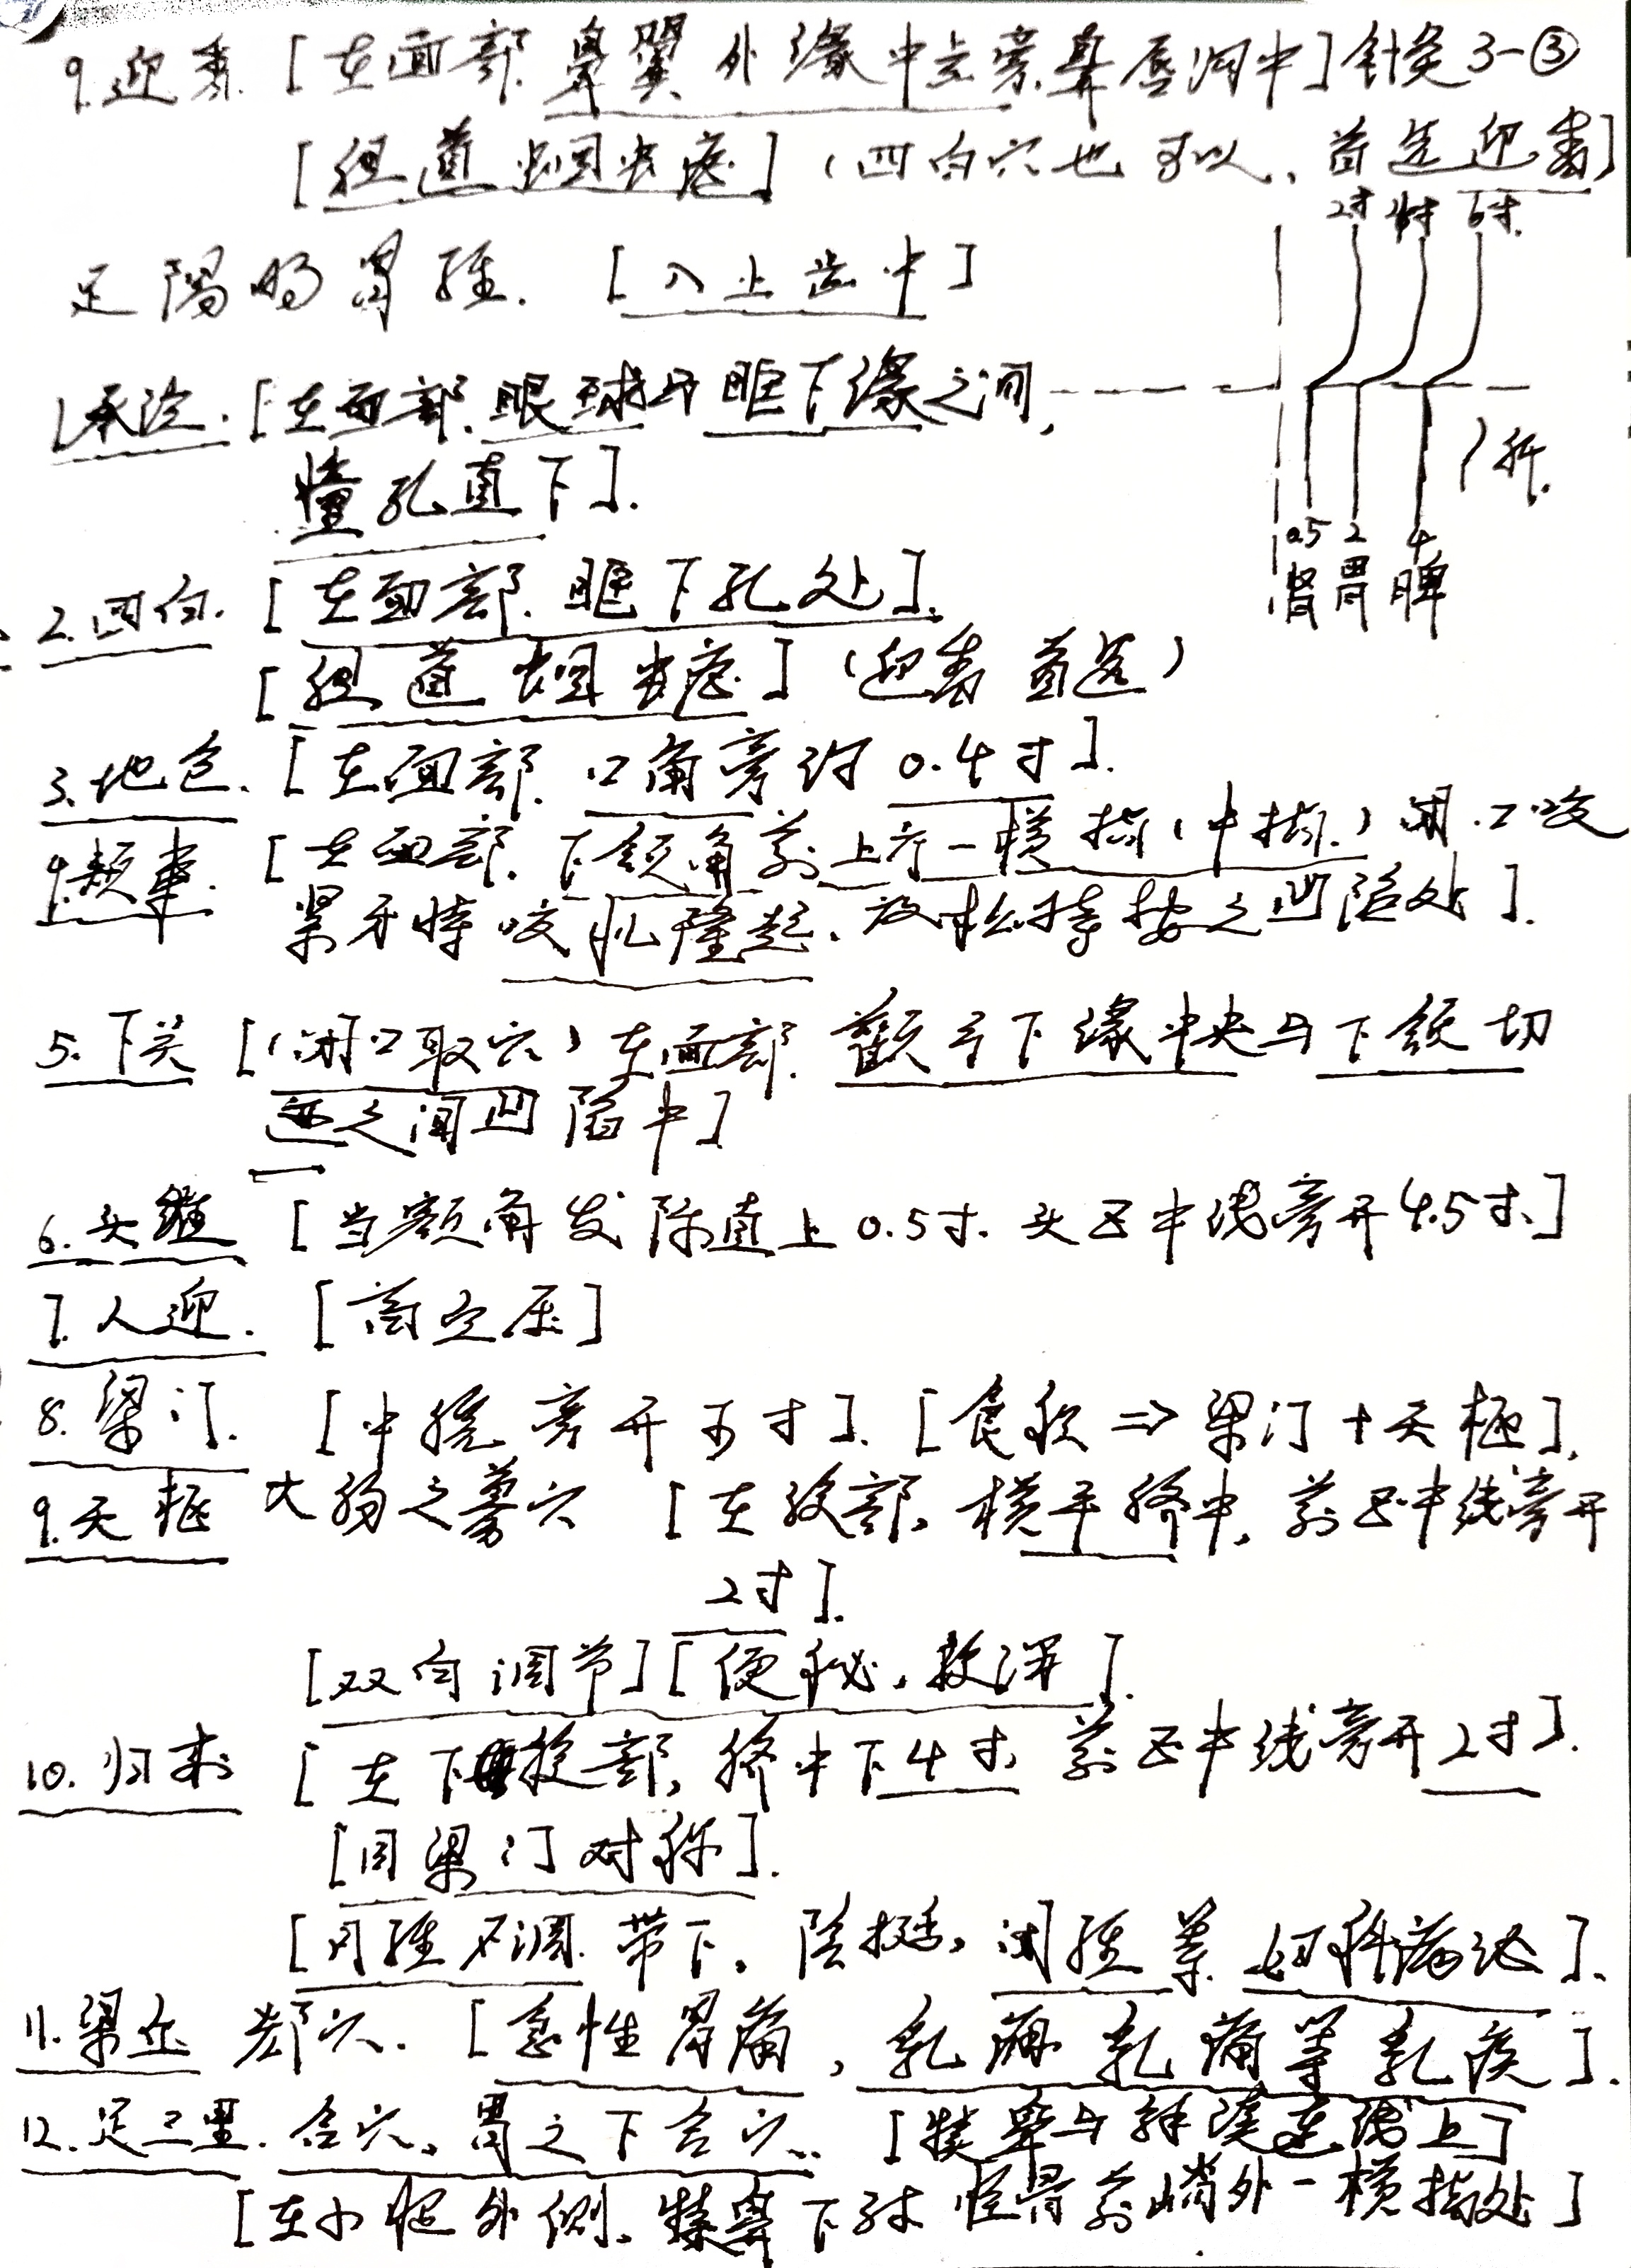 9.迎香 [在面部.鼻翼外缘中点旁.鼻唇沟中]针灸3-③
[胆道蛔虫症](四白穴也可以,首选迎香)
2寸 4寸 6寸.
足陽明胃经. [入上齿中]
1.承泣.[在面部.眼球与眶下缘之间,
瞳孔直下].
1折.
0.5 2 4
肾 胃 脾
2.四白. [在面部.眶下孔处].
[胆道蛔虫症](迎香首选)
3.地仓. [在面部.口角旁约0.4寸].
4.颊車. [在面部.下颌角前上方一横指(中指.)闭口咬
紧牙時咬肌隆起.放松時按之凹陷处].
5.下关 [(闭口取穴)在面部.颧弓下缘中央与下颌切
迹之间凹陷中]
6.头維 [当额角发际直上0.5寸.头正中线旁开4.5寸.]
7.人迎. [高血压]
8.梁门. [中脘旁开2寸].[食积⇒梁门+天枢].
9.天枢 大肠之募穴 [在腹部,横平脐中,前正中线旁开
2寸].
[双向调节][便秘,救泻].
10.归来 [在下腹部,脐中下4寸,前正中线旁开2寸].
[同梁门对称].
[月经不调.带下.陰挺,闭经等.妇科病证].
11.梁丘 郄穴. [急性胃痛,乳癖乳痛等乳疾].
12.足三里.合穴,胃之下合穴..[犊鼻与解溪连线上]
[在小腿外侧.犊鼻下3寸.胫骨前嵴外一横指处]